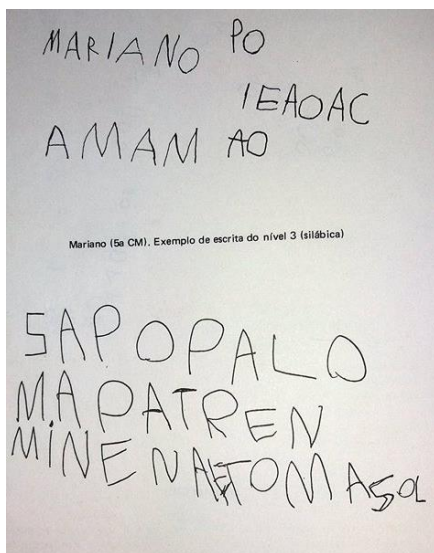 MARIANO PO
IEAOAC
AMAM AO
Mariano (5a CM). Exemplo de escrita do nível 3 (silábica)
SAPOPALO
MAPATREN
MINENA TOMASOL